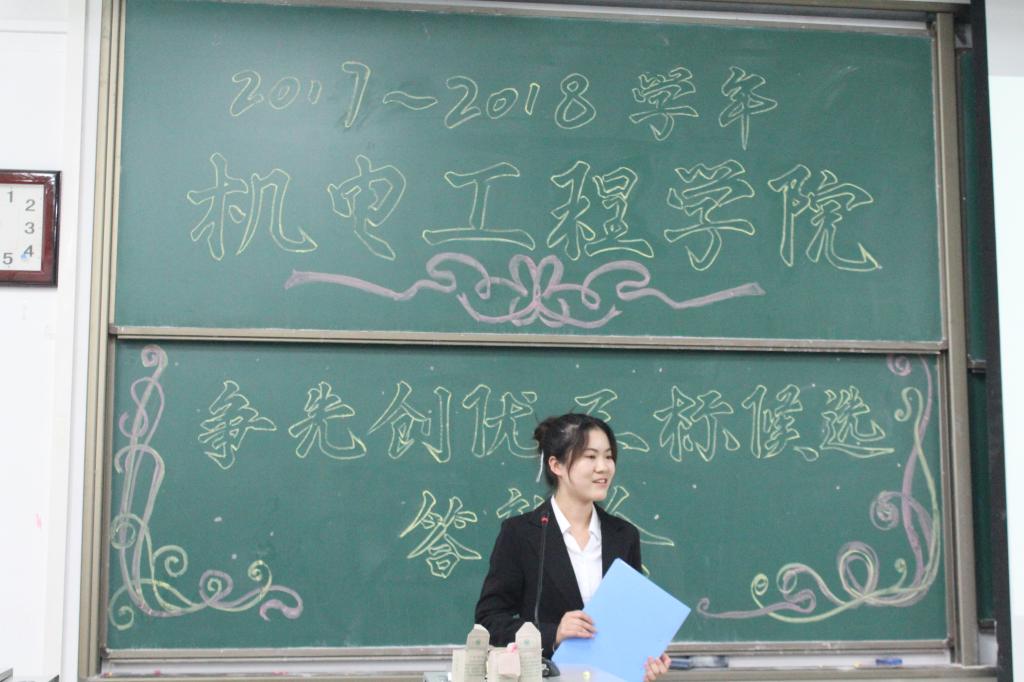 2017~2018 学年
机电工程学院
争先创优 标候选
答辩会
1
2
3
4
5